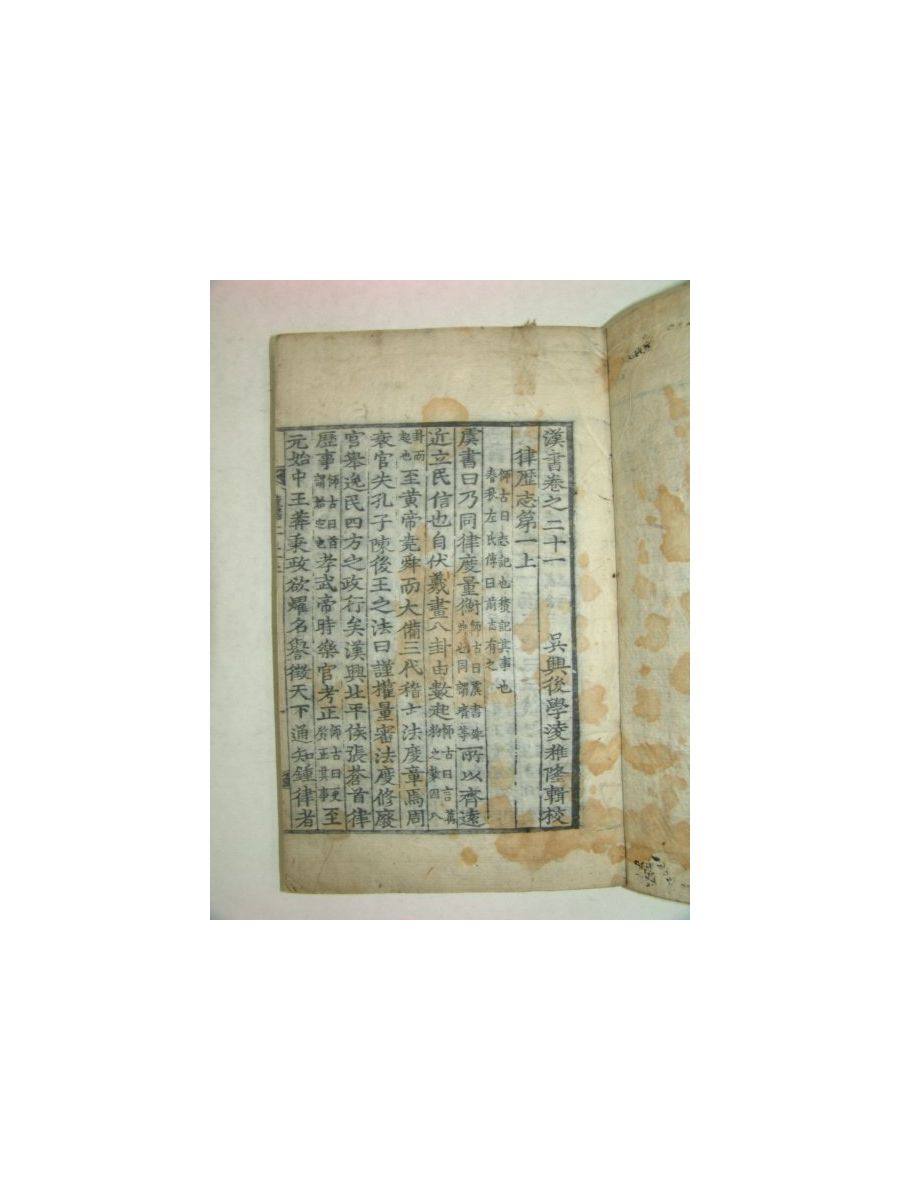 漢書卷之二十一 吳興後學凌稚隆輯校
律歷志第一上 師古曰志記也積記其事也春秋左氏傳曰前志有之
虞書曰乃同律度量衡 師古曰虞書舜典也同謂齊等 所以齊遠
近立民信也自伏羲畫八卦由數起 師古曰言萬物之數因八
卦而起也 至黃帝堯舜而大備三代稽古法度章焉周
衰官失孔子陳後王之法曰謹權量審法度修廢
官舉逸民四方之政行矣漢興北平侯張蒼首律
歷事 師古曰首謂始定也 孝武帝時樂官考正 師古曰更質正其事 至
元始中王莽秉政欲燿名譽徵天下通知鍾律者